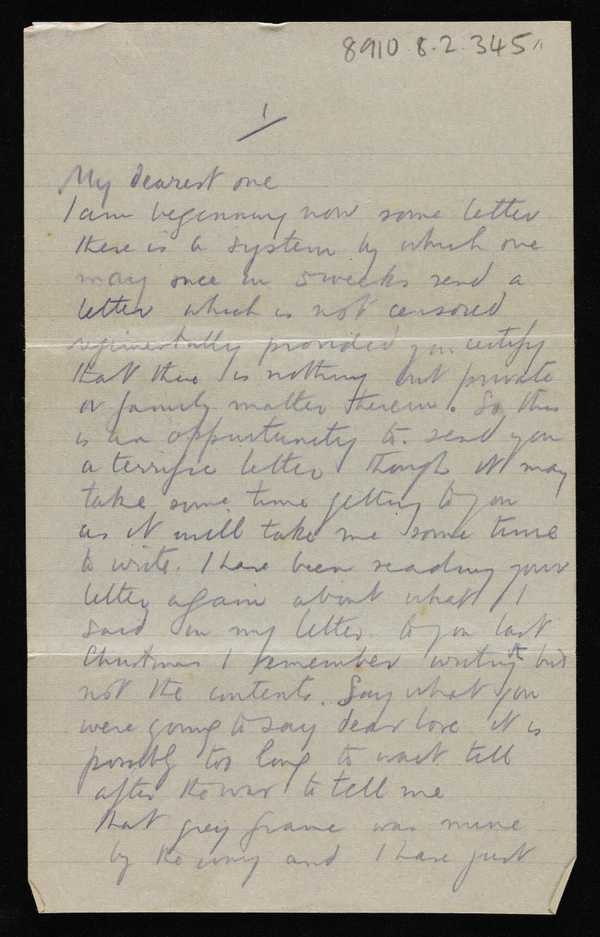 8910.8.2.345
1
My dearest one
I am beginning now some letter
there is a system by which one
may once in 5 weeks send a
letter which is not censored
regimentally provided you certify
that there is nothing but private
or family matter therein. So this
is an oppurtunity to send you
a terrific letter though it may
take some time getting to you
as it will take me some time
to write. I have been reading your
letter again about what I
said in my letter to you last
Christmas I remember writing it but
not the contents. Say what you
were going to say dear love it is
possibly too long to wait till
after the war to tell me
that grey frame was mine
by the way and I have just